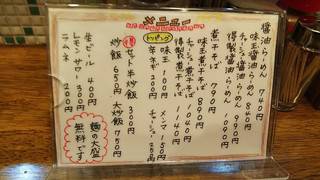 メニュー
醤油らーめん 740円
味玉醤油らーめん 840円
チャーシュー醤油らーめん 990円
得製醤油らーめん 1090円
煮干そば 790円
味玉煮干そば 890円
チャーシュー煮干そば 1040円
得製煮干そば 1140円
トッピング
味玉 100円
メンマ 150円
チャーシュー 250円
セット半炒飯 300円
炒飯 650円
大炒飯 750円
生ビール 400円
レモンサワー 300円
ラムネ 200円
麺の大盛
無料です